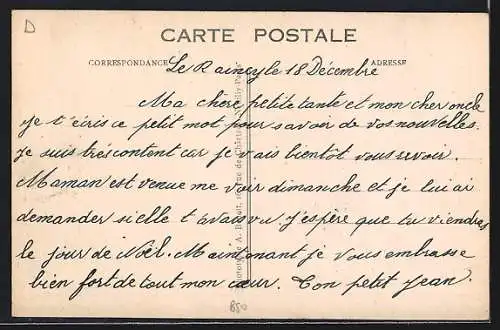 D
CARTE POSTALE
CORRESPONDANCE
ADRESSE
Le Raincy le 18 Décembre
Ma chère petite tante et mon cher oncle
je t'écris ce petit mot pour savoir de vos nouvelles.
je suis très content car je vais bientôt vous revoir.
Maman est venue me voir dimanche et je lui ai
demander si elle t'avais vu j'espère que tu viendras
le jour de Noël. Maintenant je vous embrasse
bien fort de tout mon cœur. Ton petit Jean.
850